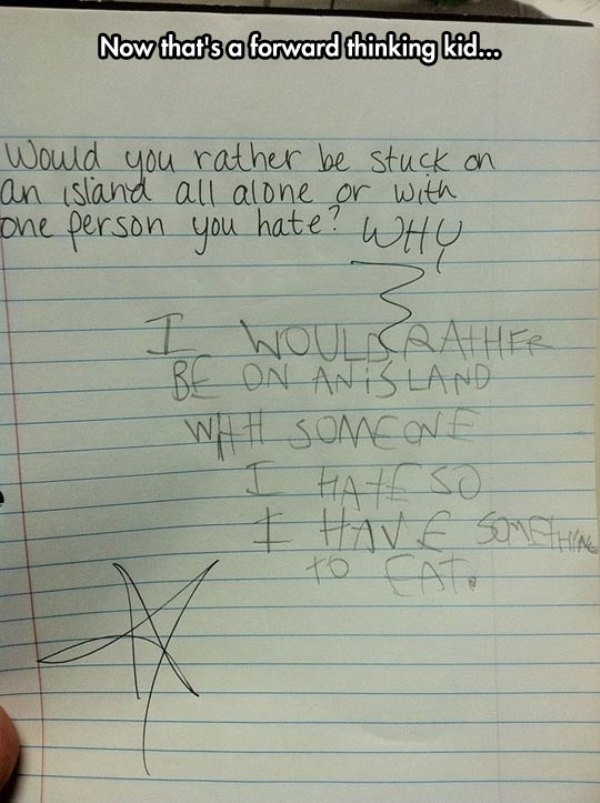 Now that's a forward thinking kid...
Would you rather be stuck on
an island all alone or with
one person you hate? WHY
I WOULD RATHER
BE ON AN iSLAND
WITH SOMEONE
I HATE SO
I HAVE SOMETHING
TO EAT.